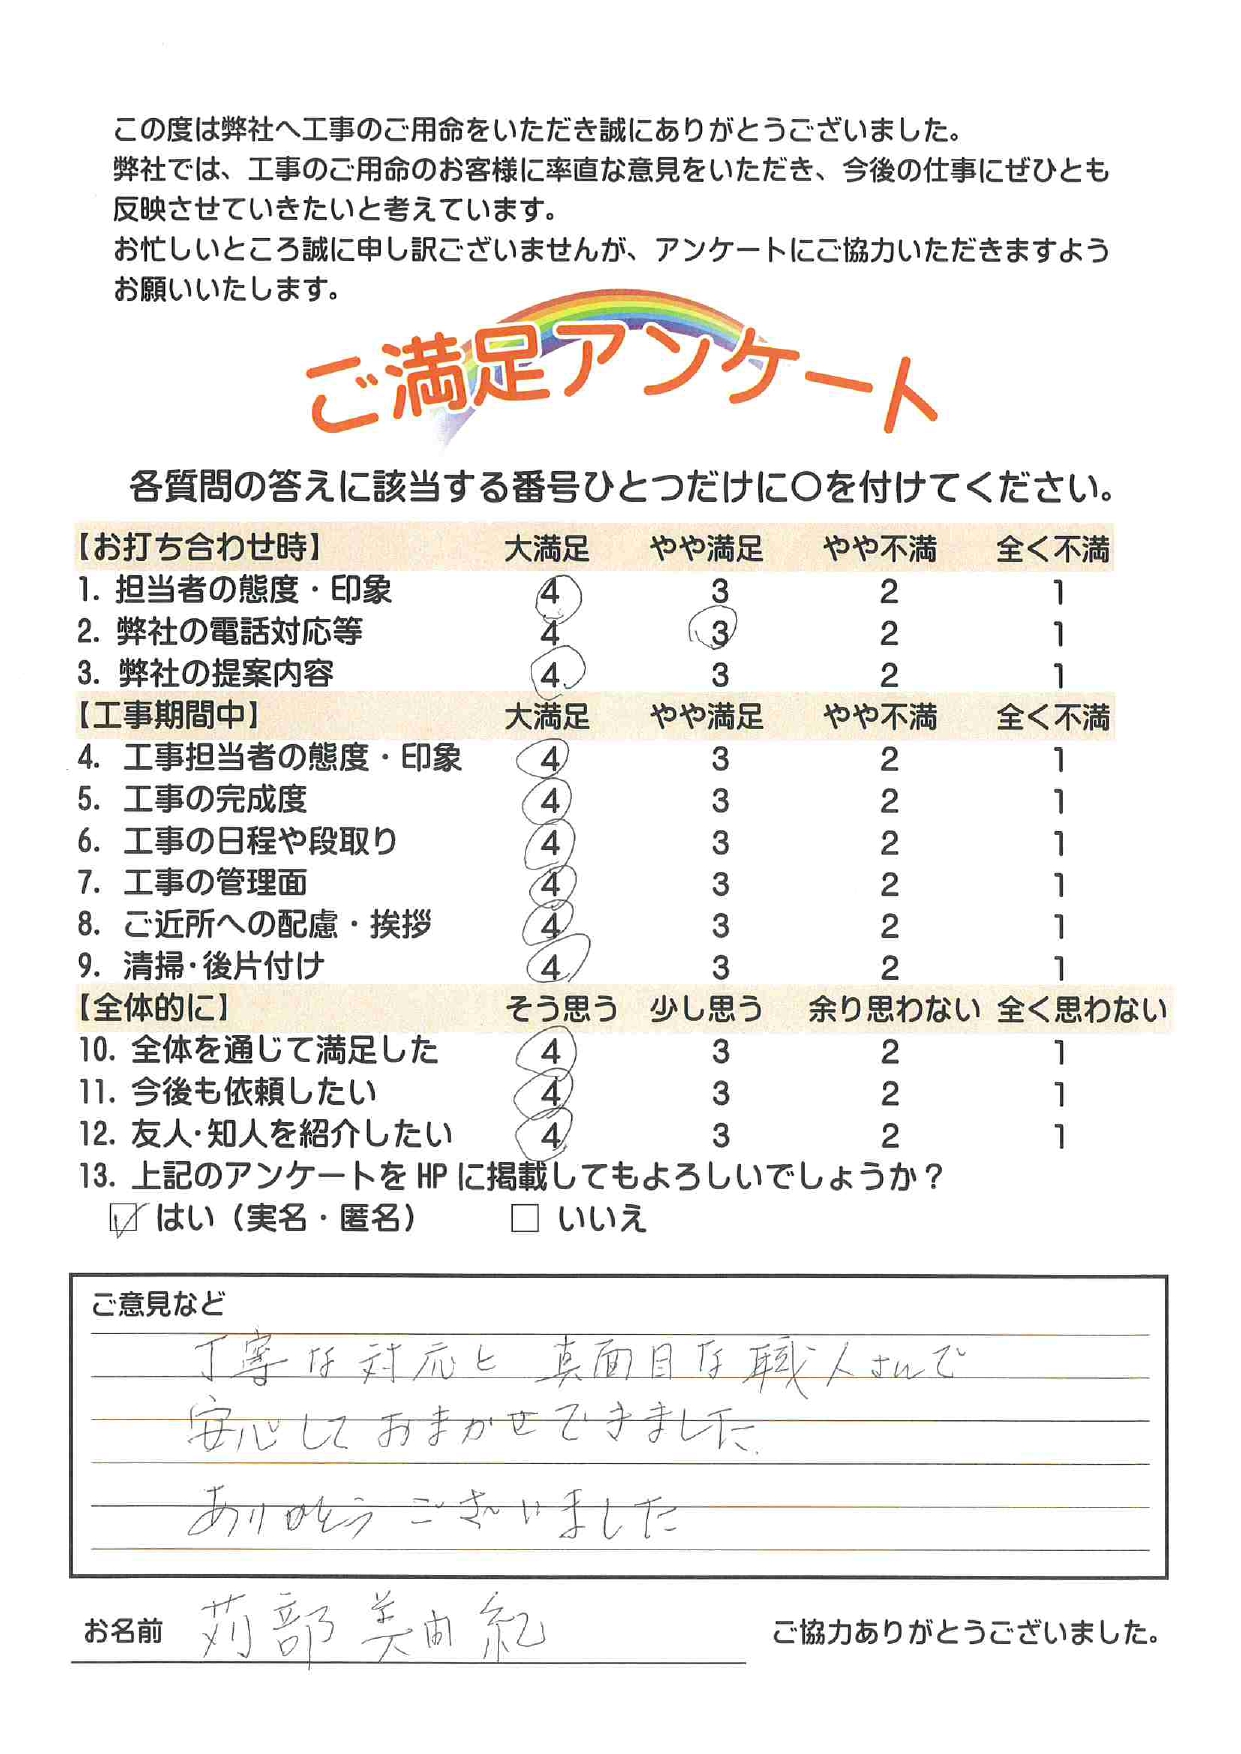 この度は弊社へ工事のご用命をいただき誠にありがとうございました。
弊社では、工事のご用命のお客様に率直な意見をいただき、今後の仕事にぜひとも
反映させていきたいと考えています。
お忙しいところ誠に申し訳ございませんが、アンケートにご協力いただきますよう
お願いいたします。
ご満足アンケート
各質問の答えに該当する番号ひとつだけに〇を付けてください。
【お打ち合わせ時】 大満足 やや満足 やや不満 全く不満
1. 担当者の態度・印象 4 3 2 1
2. 弊社の電話対応等 4 3 2 1
3. 弊社の提案内容 4 3 2 1
【工事期間中】 大満足 やや満足 やや不満 全く不満
4. 工事担当者の態度・印象 4 3 2 1
5. 工事の完成度 4 3 2 1
6. 工事の日程や段取り 4 3 2 1
7. 工事の管理面 4 3 2 1
8. ご近所への配慮・挨拶 4 3 2 1
9. 清掃・後片付け 4 3 2 1
【全体的に】 そう思う 少し思う 余り思わない 全く思わない
10. 全体を通じて満足した 4 3 2 1
11. 今後も依頼したい 4 3 2 1
12. 友人・知人を紹介したい 4 3 2 1
13. 上記のアンケートを HP に掲載してもよろしいでしょうか？
☑ はい（実名・匿名） □ いいえ
ご意見など
丁寧な対応と 真面目な職人さんで
安心しておまかせできました。
ありがとうございました
お名前 苅部 美由紀 ご協力ありがとうございました。